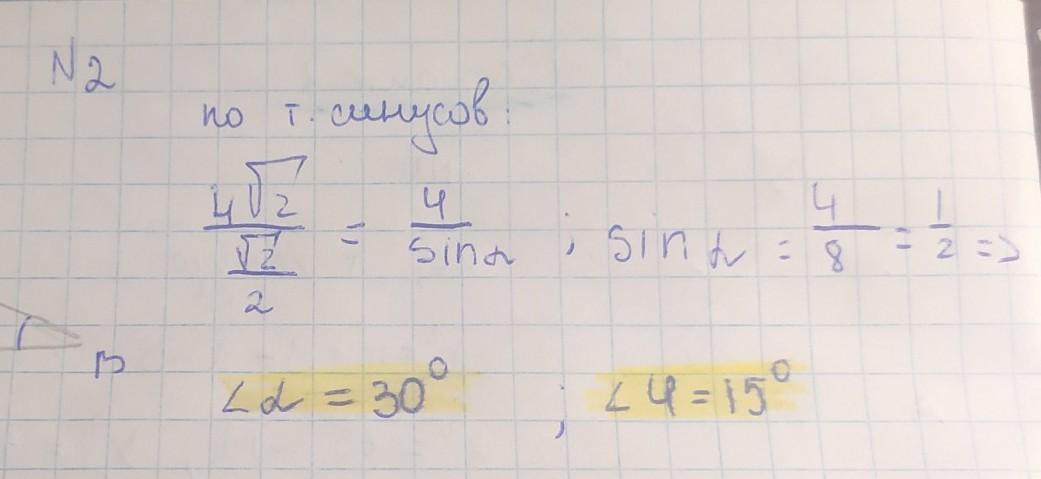 N2
по т. синусов:
4√2 / (√2/2) = 4 / sin α ; sin α = 4/8 = 1/2 =>
B
∠α = 30° ; ∠Ч = 15°